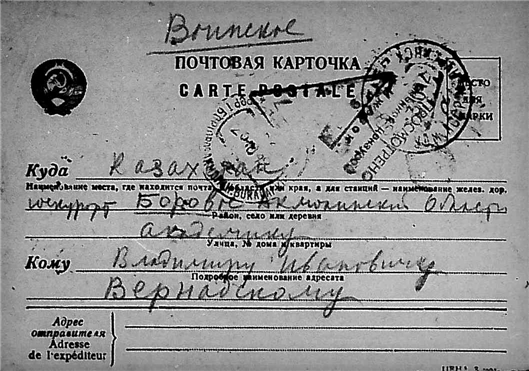 Воинское
ПОЧТОВАЯ КАРТОЧКА
CARTE POSTALE
МЕСТО
ДЛЯ
МАРКИ
ПРОСМОТРЕНО
Куда Казахстан
Наименование места, где находится почта, области или края, а для станций — наименование желез. дор.
госкурорт Боровое Акмолинской Области
Район, село или деревня
академику
Улица, № дома и квартиры
Кому Владимиру Ивановичу
Подробное наименование адресата
Вернадскому
Адрес
отправителя
Adresse
de l'expéditeur
ЦЕНА